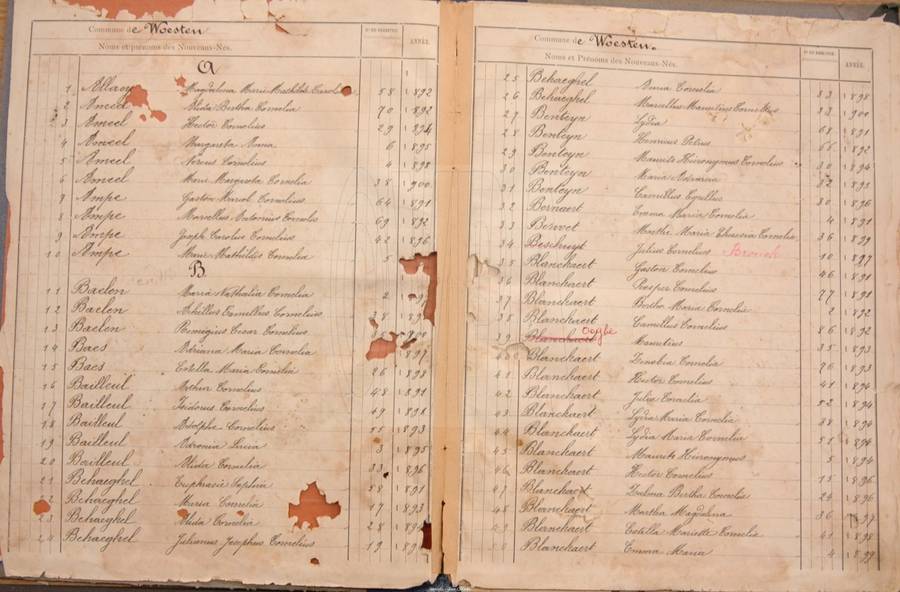 Commune de Woesten
Noms et prénoms des Nouveaux-Nés.
ANNÉE.
A
1 Magdalena Maria Mathilda 58 1892
2 Ameel Alida Bertha Cornelia 70 1892
3 Ameel Hector Cornelius 29 1894
4 Ameel Margareta Anna 6 1895
5 Ameel Nereus Cornelius 4 1898
6 Ameel Marie Margareta Cornelia 38 1900
7 Ampe Gaston Cornelius 64 1891
8 Ampe Marcellus Antonius Cornelis 69 1892
9 Ampe Joseph Carolus Cornelius 42 1896
10 Ampe Marie Mathildis Cornelia 5
B
11 Baelen Maria Nathalia Cornelia 2
12 Baelen Achilles Camillus Cornelius
13 Baelen Remigius Cesar Cornelius
14 Baes Adriana Maria Cornelia 1897
15 Baes Estella Maria Cornelia 26 1898
16 Bailleul Arthur Cornelius 48 1891
17 Bailleul Isidorus Cornelius 49 1891
18 Bailleul Adolphe Cornelius 55 1893
19 Bailleul Lucia 3 1895
20 Bailleul Alida Cornelia 33 1896
21 Behaeghel Euphrasie Sophia 58 1891
22 Behaeghel Maria Cornelia 17 1893
23 Behaeghel Alida Cornelia 28
24 Behaeghel Julianus Josephus Cornelius 19
Commune de Woesten.
Noms et Prénoms des Nouveaux-Nés.
ANNÉE.
25 Behaeghel Cornelia 83 1898
26 Behaeghel Marcellus Mauritius Cornelius 33 1900
27 Benteyn Lydia 68 1891
28 Benteyn Henricus Petrus 66 1892
29 Benteyn Maurits Hieronymus Cornelius 30 1894
30 Benteyn Maria 32 1895
31 Benteyn Camillus Cyrillus 30 1896
32 Bernaert Emma Maria Cornelia 4 1891
33 Marthe Maria Theresia Cornelia 36 1899
34 Beschuyt Julius Cornelius Brouck 10 1897
35 Blanckaert Gaston Cornelius 46 1891
36 Blanckaert Prosper Cornelius 77 1891
37 Blanckaert Bertha Maria Cornelia 2 1892
38 Blanckaert Camellus Cornelius 86 1892
39 Blanckaert Mauritius 35 1893
Blanckaert Zenobia Cornelia 76 1893
41 Blanckaert Hector Cornelius 41 1894
42 Blanckaert Julia Cornelia 52 1894
43 Blanckaert Lydia Maria Cornelia 38 1894
44 Blanckaert Lydia Maria Cornelia 51 1894
45 Blanckaert Maurits Hieronymus 5 1894
46 Blanckaert Hector Cornelius 15 1896
47 Blanckaert Zulma Bertha Cornelia 24 1896
48 Blanckaert Martha Magdalena 36 1897
49 Blanckaert Estella Mariette Cornelia 41 1898
Blanckaert Emma Maria 4 1899